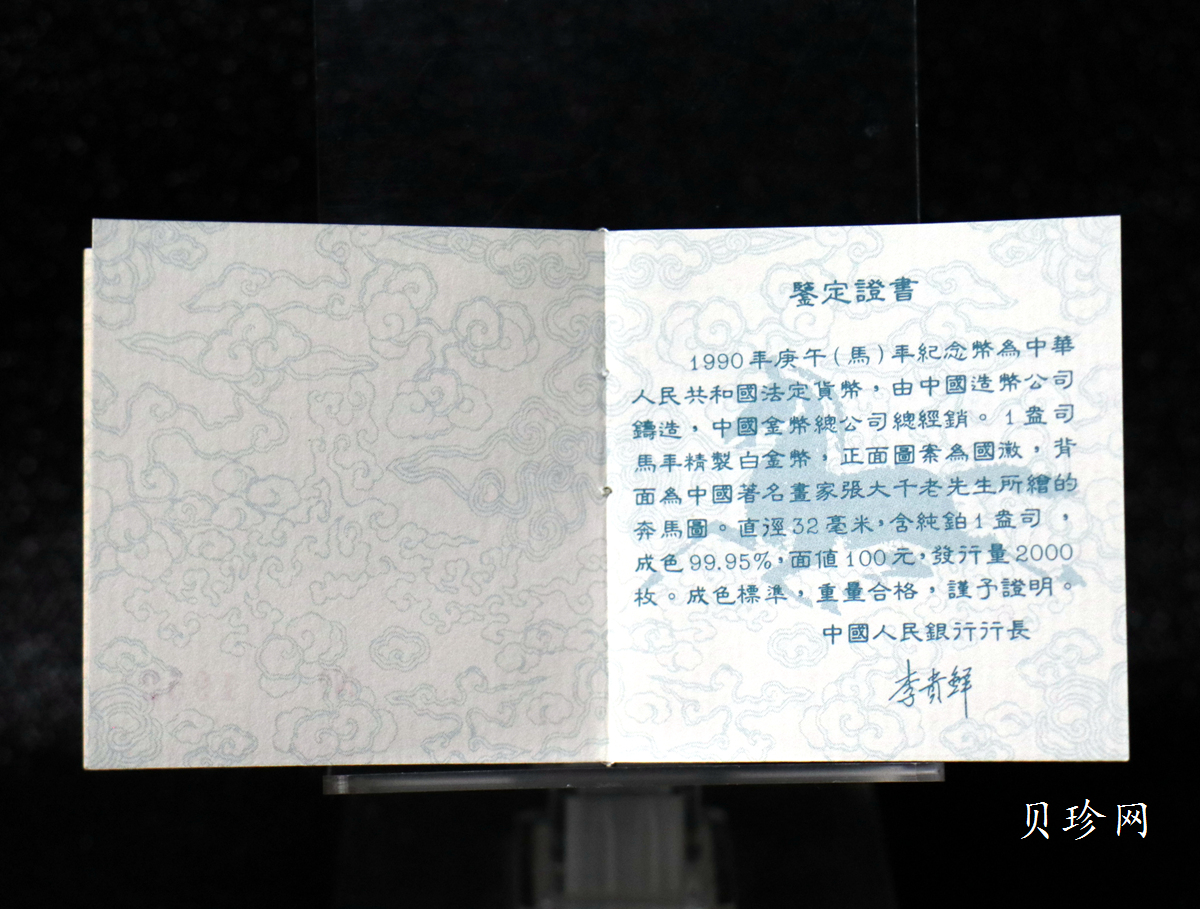 鑒定證書
1990年庚午(馬)年紀念幣為中華
人民共和國法定貨幣，由中國造幣公司
鑄造，中國金幣總公司總經銷。1盎司
馬年精製白金幣，正面圖案為國徽，背
面為中國著名畫家張大千老先生所繪的
奔馬圖。直徑32毫米，含純鉑1盎司，
成色99.95%，面值100元，發行量2000
枚。成色標準，重量合格，謹予證明。
中國人民銀行行長
李貴鲜
贝珍网